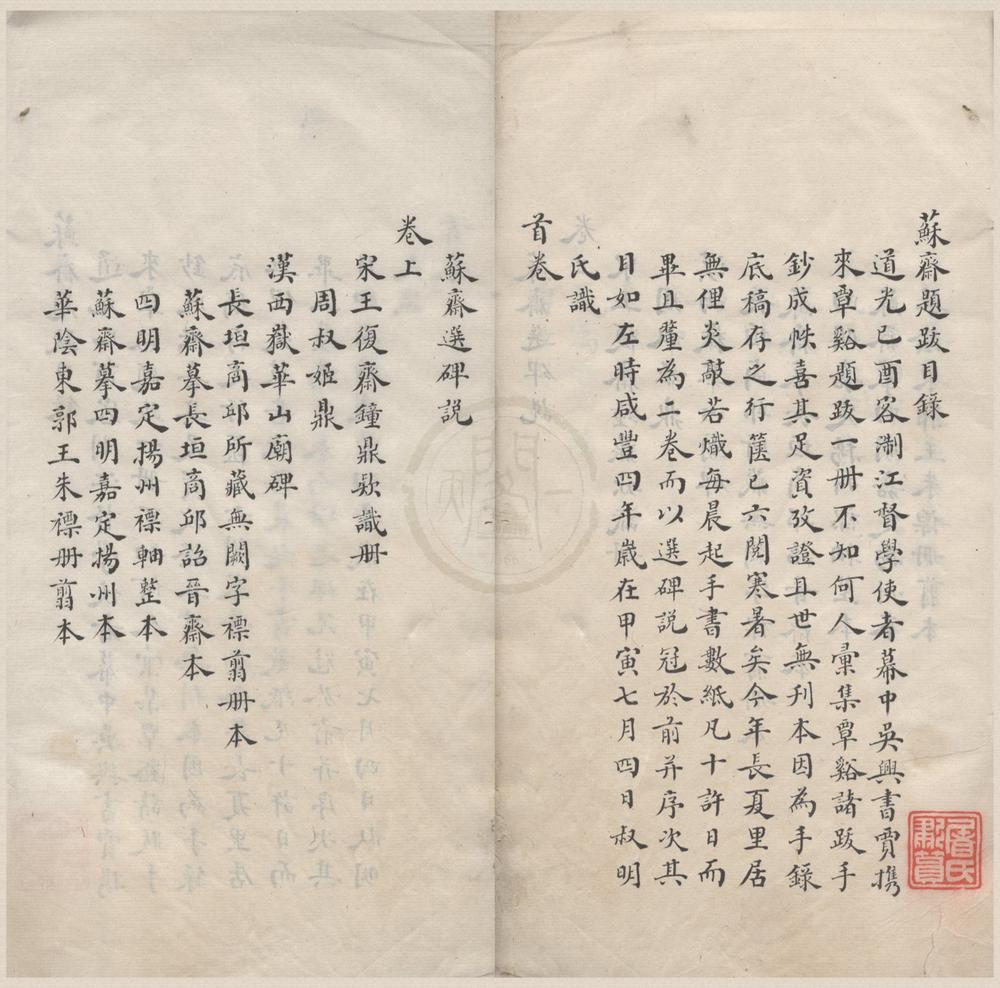 蘇齋題跋目錄
道光己酉客淛江督學使者幕中吳興書賈携
來覃谿題跋一册不知何人彙集覃谿諸跋手
鈔成帙喜其足資攷證且世無刊本因為手錄
底稿存之行篋已六閱寒暑矣今年長夏里居
無俚炎歊若熾每晨起手書數紙凡十許日而
畢且釐為二卷而以選碑說冠於前并序次其
目如左時咸豐四年嵗在甲寅七月四日叔明
氏識
首卷
蘇齋選碑説
卷上
宋王復齋鐘鼎欵識册
周叔姬鼎
漢西嶽華山廟碑
長垣商邱所藏無闕字褾翦册本
蘇齋摹長垣商邱詒晉齋本
四明嘉定揚州褾軸整本
蘇齋摹四明嘉定揚州本
華陰東郭王朱褾册翦本